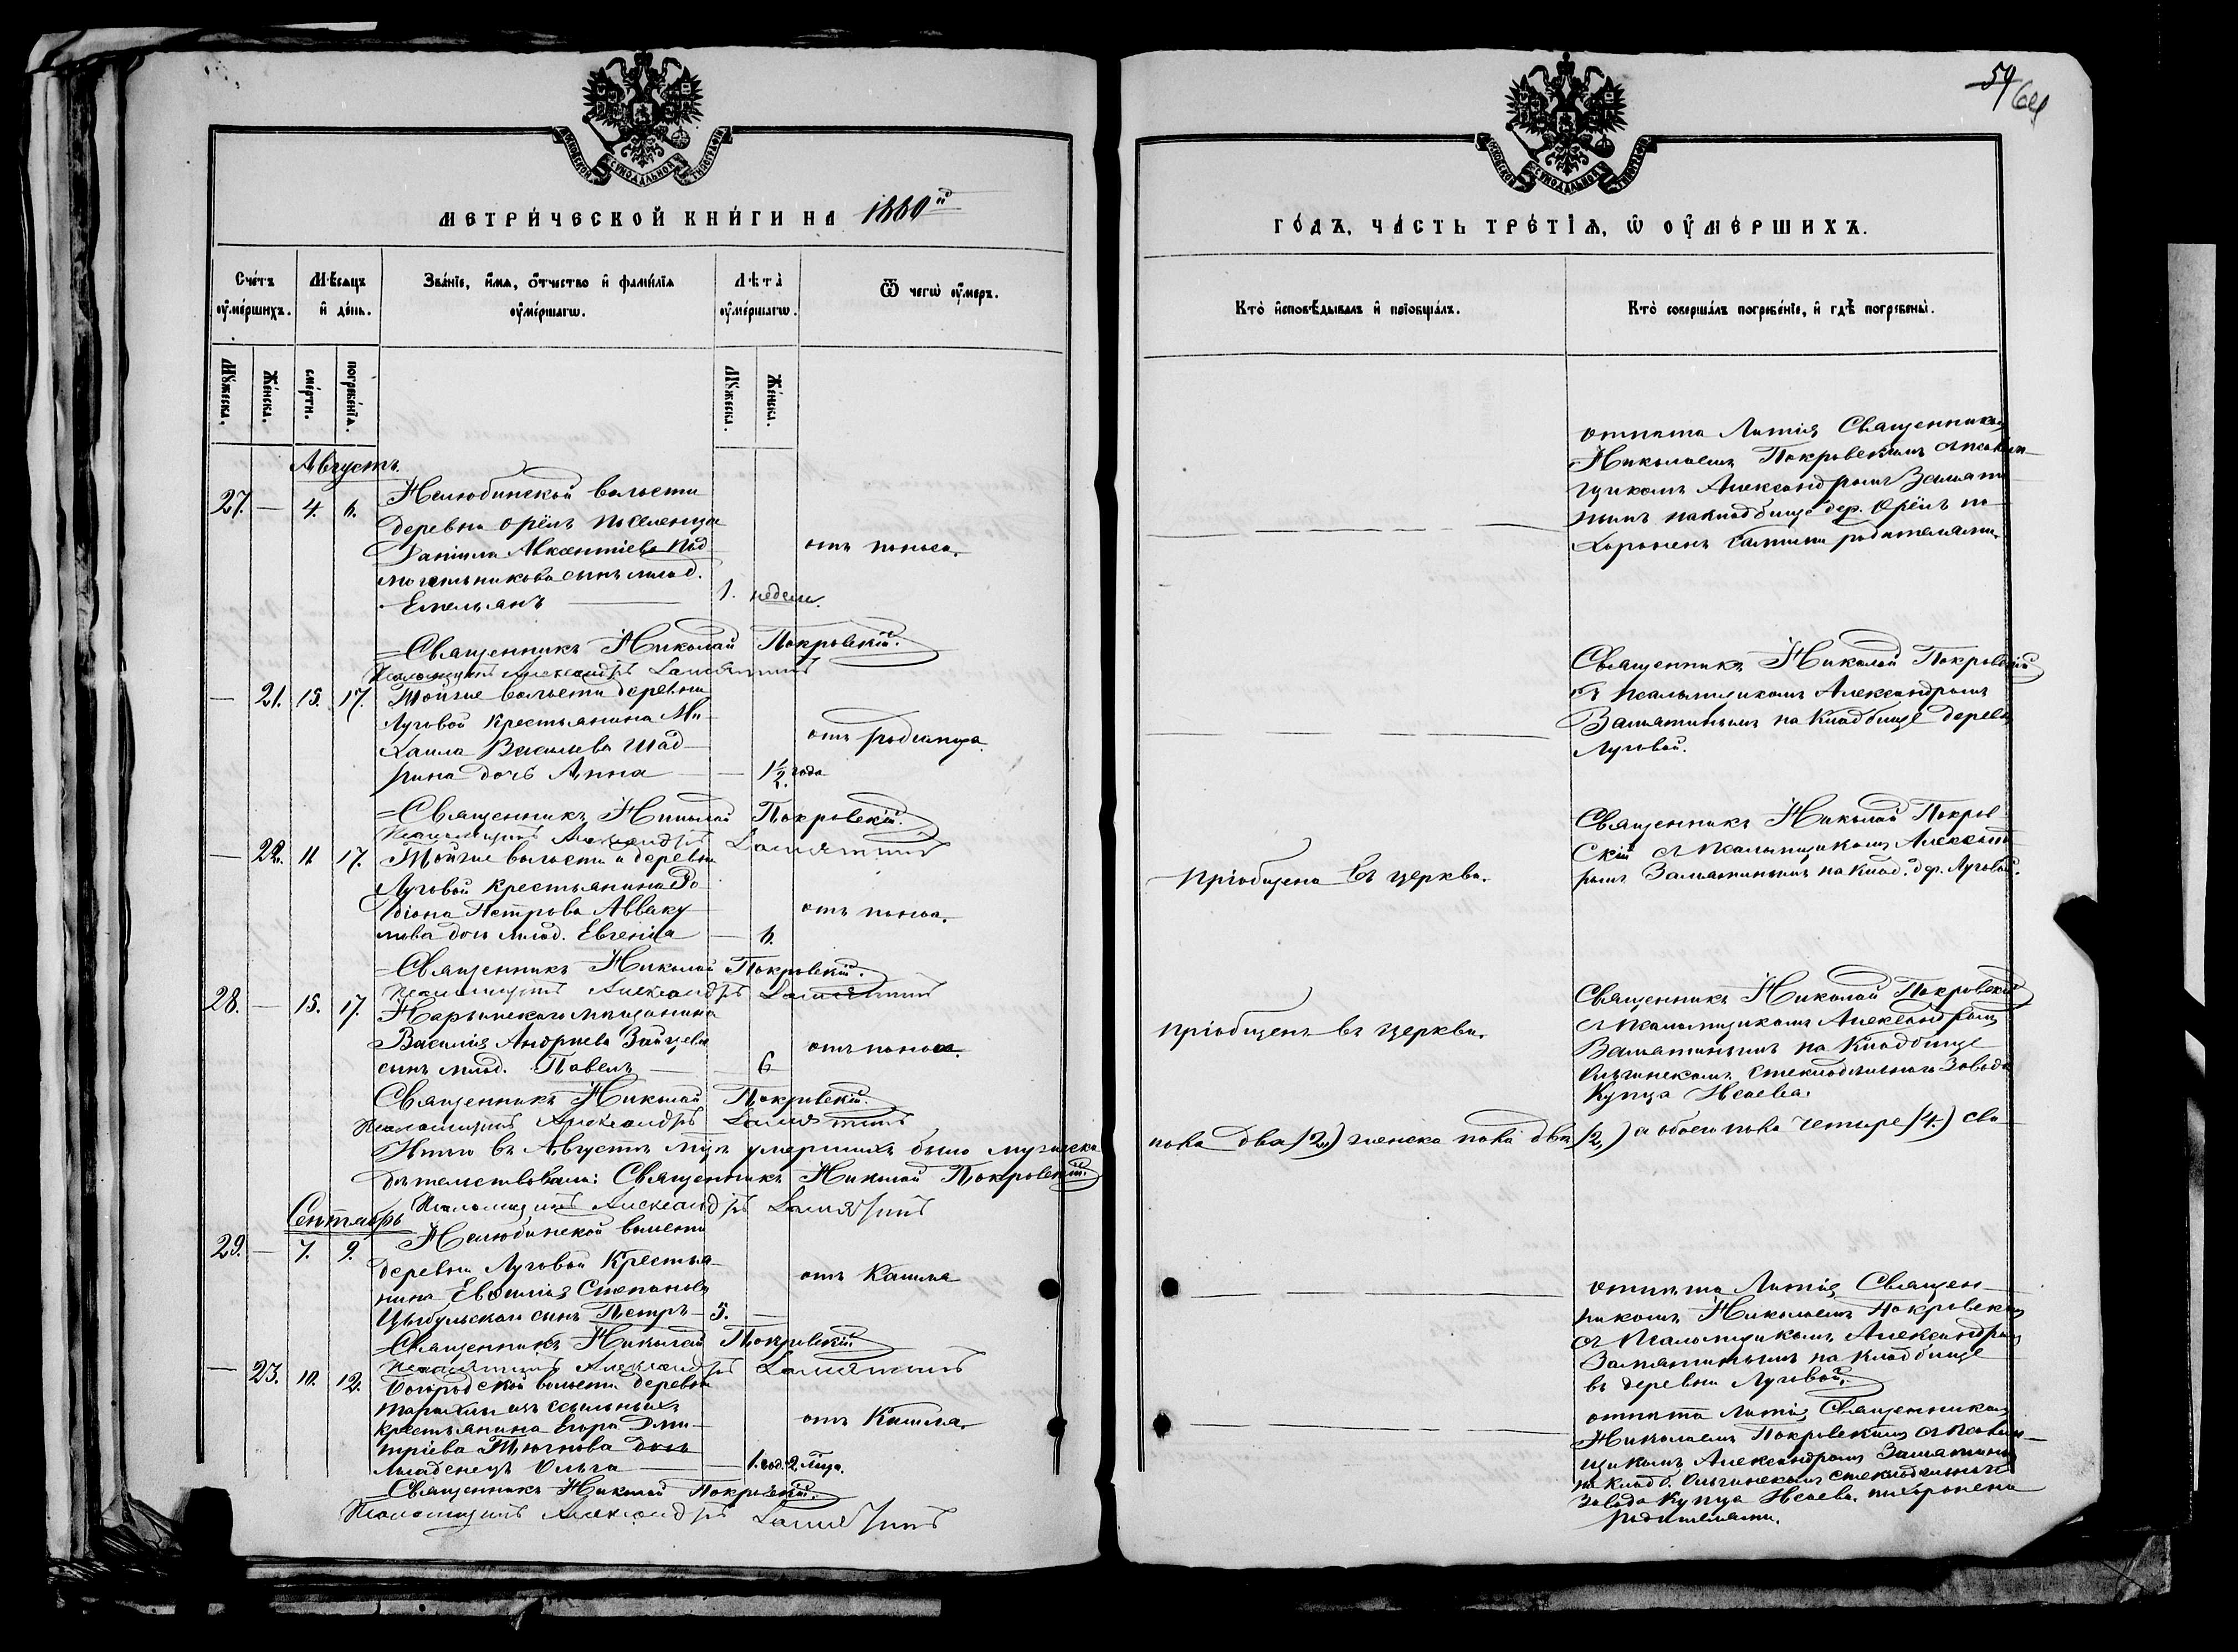 59
64
МОСКОВСКОЙ СѴНОДАЛЬНОЙ ТИПОГРАФІИ
МОСКОВСКОЙ СѴНОДАЛЬНОЙ ТИПОГРАФІИ
МЕТРИ́ЧЕСКОЙ КНИ́ГИ НА 1880й
ГО́ДЪ, ЧА́СТЬ ТРЕ́ТІѦ, Ѡ ОУ҆МЕ́РШИХЪ.
Сче́тъ оу҆ме́ршихъ.
Мѣ́сяцъ и҆ де́нь.
Зва́ніе, и҆́мя, ѻ҆́тчество и҆ фами́лія оу҆ме́ршагѡ.
Лѣ́та̀ оу҆ме́ршагѡ.
Ѿ чегѡ̀ оу҆́меръ.
Кто̀ и҆сповѣ́дывалъ и҆ пріобща́лъ.
Кто̀ соверша́лъ погребе́ніе, и҆ гдѣ̀ погребены̀.
Мꙋ́жеска.
Же́нска.
сме́рти.
погребе́нія.
Мꙋ́жеска.
Же́нска.
Августъ.
27. — 4. 6. Нелюбинской волости
деревни Орёлъ поселенца
Даніила Авксентіева Под
могильникова сынъ млад.
Емельянъ — 1. недели.
отъ поноса.
отпета Литія Священникомъ
Николаемъ Покровскимъ съ псалом-
щикомъ Александромъ Замяти-
нымъ на кладбище дер. Орёлъ по-
хороненъ самими родителями.
=Священникъ Николай Покровскій.
Псаломщикъ Александръ Замятинъ
— 21. 15. 17. Тойже волости деревни
Луговой крестьянина Ми-
хаила Васильева Шад-
рина дочь Анна — 1½ года
отъ родимца.
Священникъ Николай Покровскій
съ псаломщикомъ Александромъ
Замятинымъ на кладбище деревн
Луговой.
=Священникъ Николай Покровскій.
Псаломщикъ Александръ Замятинъ
— 22. 11. 17. Тойже волости и деревни
Луговой крестьянина Ро
діона Петрова Авваку-
мова дочь млад. Евгенія — 6.
отъ поноса.
Пріобщена въ церкви.
Священникъ Николай Покров-
скій съ псаломщикомъ Александ
ромъ Замятинымъ на клад. дер. Луговой.
=Священникъ Николай Покровскій.
Псаломщикъ Александръ Замятинъ
28. — 15. 17. Нарымскаго мещанина
Василія Андреева Зайцева
сынъ млад. Павелъ — 6
отъ поноса.
Пріобщенъ въ церкви.
Священникъ Николай Покровскій
съ псаломщикомъ Александромъ
Замятинымъ на кладбище
Ольгинскомъ стеклоделнаго завода
Купца Исаева.
Священникъ Николай Покровскій.
Псаломщикъ Александръ Замятинъ
Итого въ Августѣ м-цѣ умершихъ было мужеска
пола два (2) женска пола двѣ (2) а обоего пола четыре (4.) сви
дѣтельствовали: Священникъ Николай Покровскій.
Псаломщикъ Александръ Замятинъ
Сентябрь
29. — 7. 9. Нелюбинской волости
деревни Луговой крестья-
нина Евфимія Степанова
Цыбульскаго сынъ Петръ — 5. —
отъ Кашля
отпета Литія Священ-
никомъ Николаемъ Покровским
съ псаломщикомъ Александром
Замятинымъ на кладбище
въ деревни Луговой.
Священникъ Николай Покровскій
Псаломщикъ Александръ Замятинъ
— 23. 10. 12. Богородской волости деревни
изъ ссыльныхъ
крестьянина Егора Дми-
тріева дочь
младенецъ Ольга — 1. год. 2. м-ца.
отъ Кашля.
отпета Литія Священникомъ
Николаемъ Покровскимъ съ псалом-
щикомъ Александромъ Замятиным
на кладб. Ольгинскомъ стеклодельнаго
завода Купца Исаева. похоронена
родителями.
Священникъ Николай Покровскій.
Псаломщикъ Александръ Замятинъ